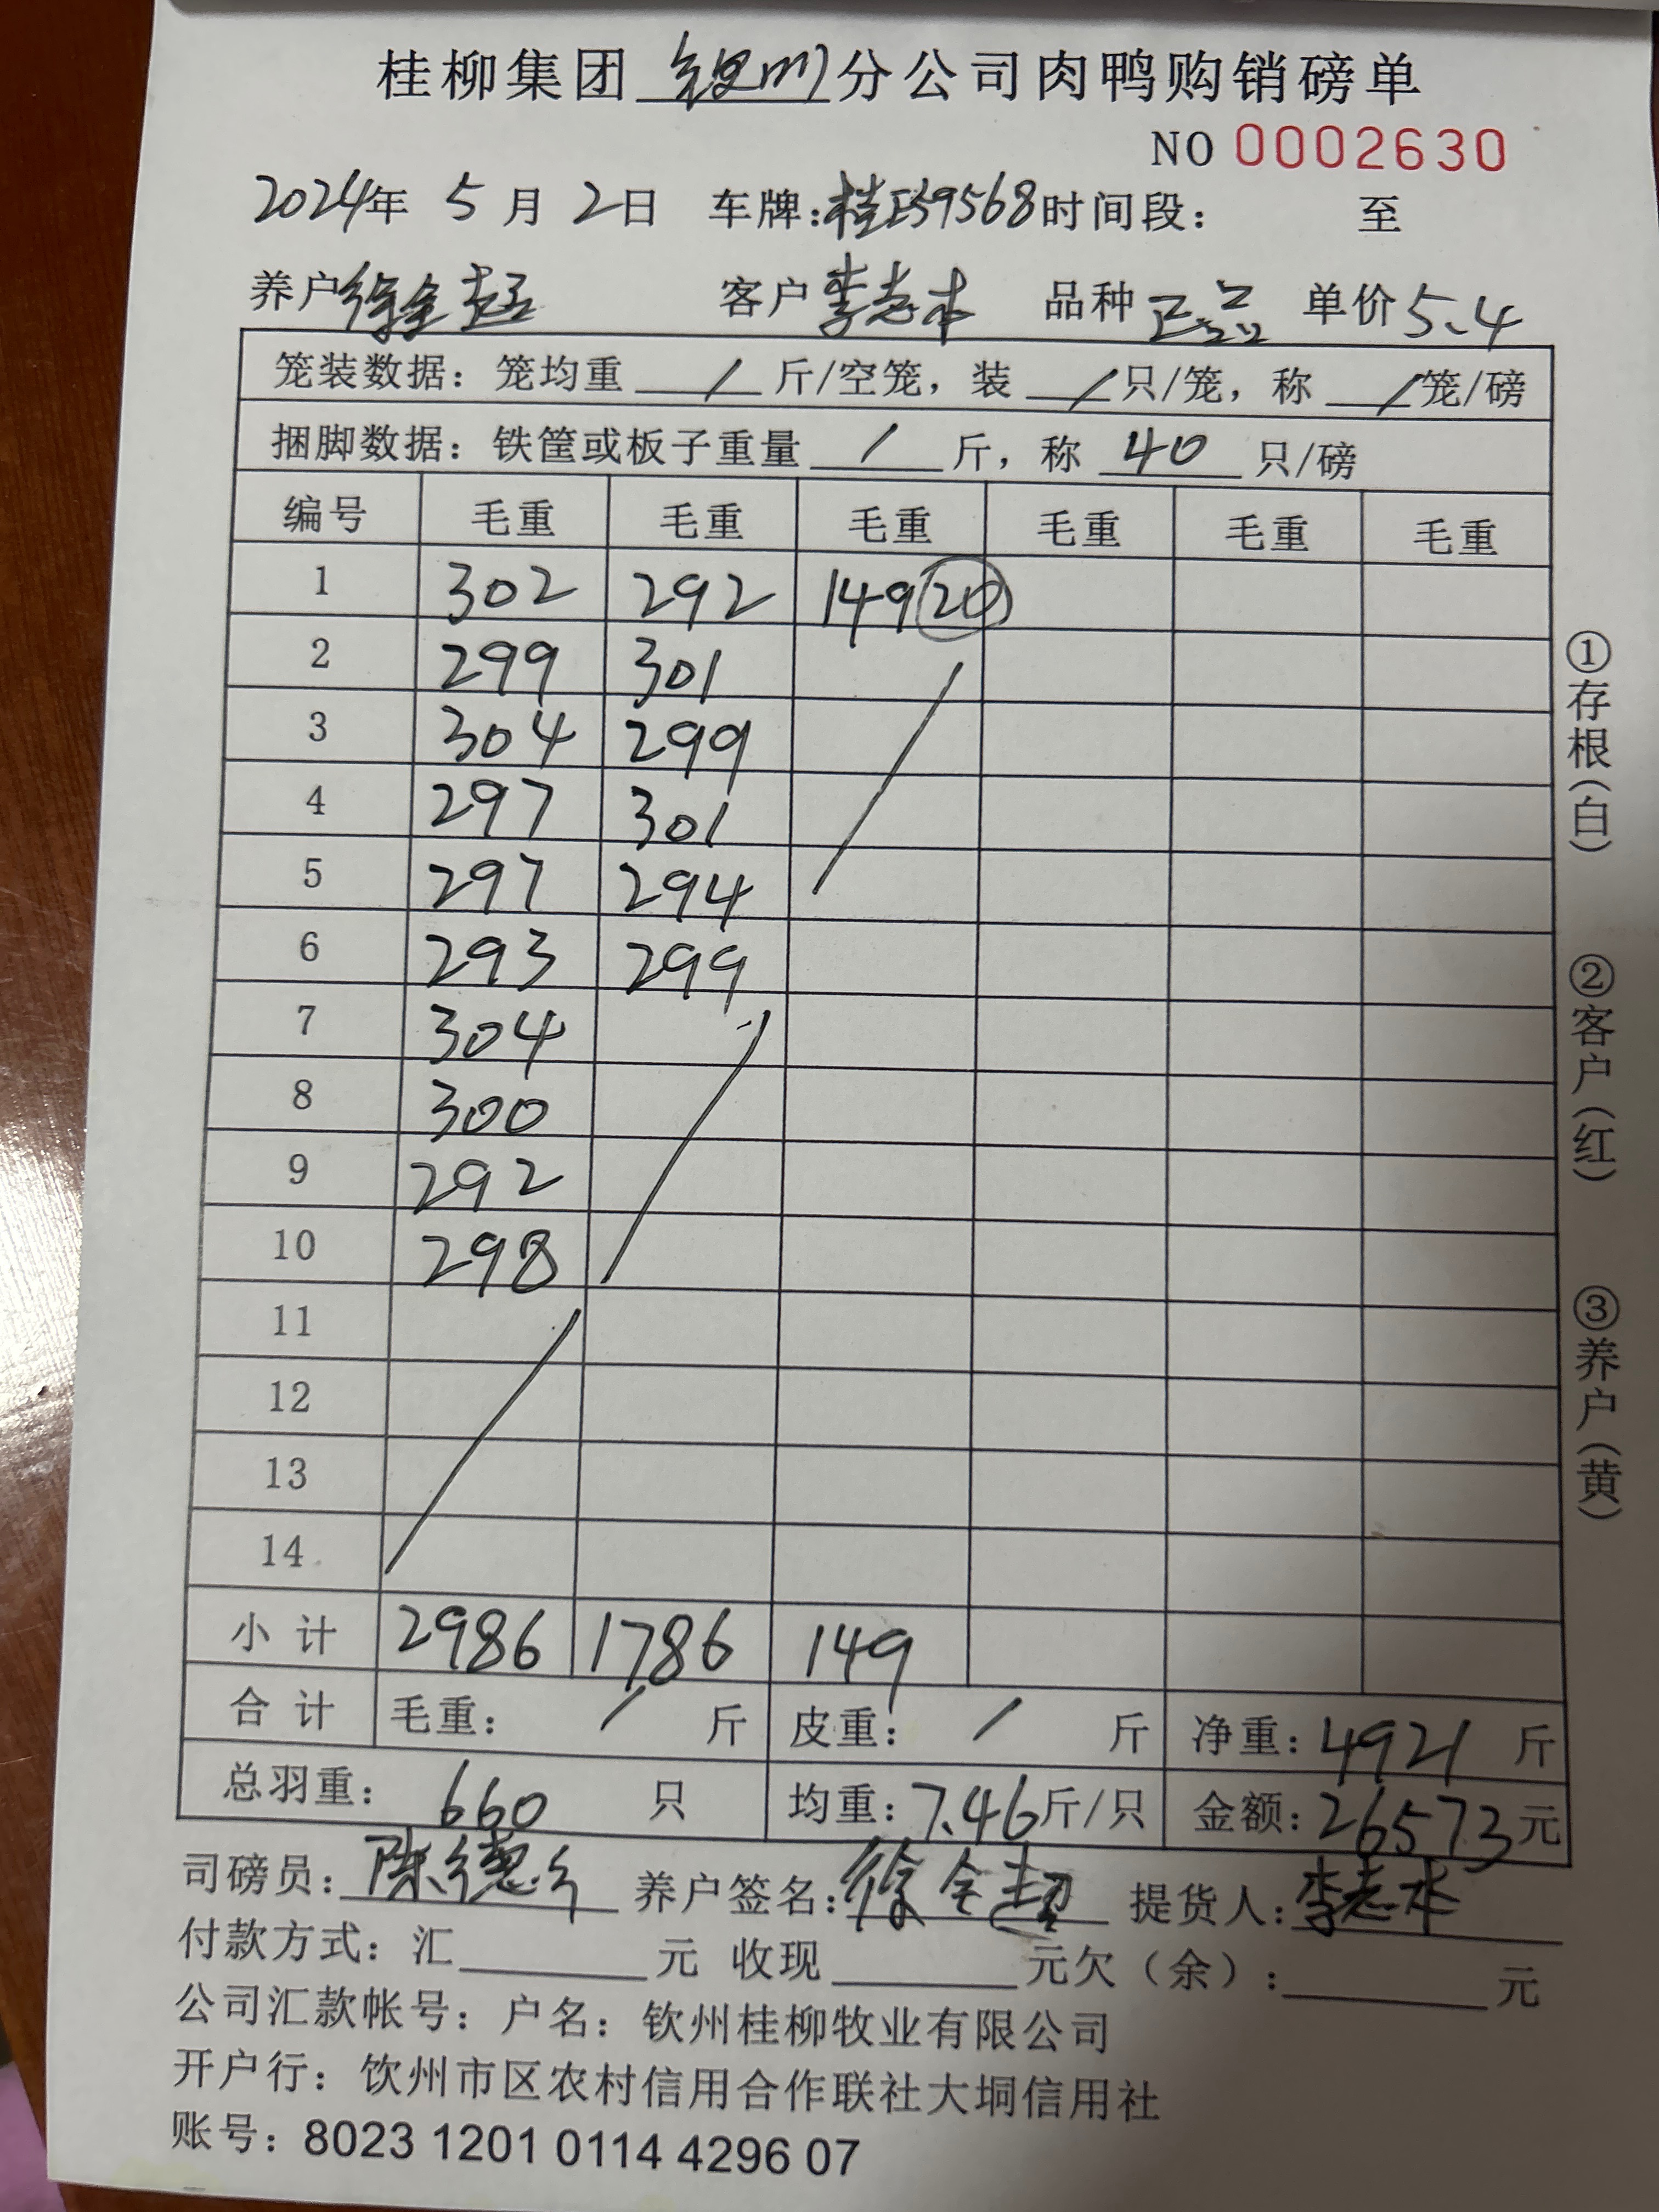 桂柳集团 钦州 分公司肉鸭购销磅单
NO 0002630
2024年 5 月 2日 车牌:桂 39568 时间段: 至
养户 徐全超 客户 李志本 品种 正品 单价 5.4
笼装数据: 笼均重 / 斤/空笼, 装 / 只/笼, 称 / 笼/磅
捆脚数据: 铁筐或板子重量 / 斤, 称 40 只/磅
编号 毛重 毛重 毛重 毛重 毛重 毛重
1 302 292 149 20
2 299 301
3 304 299
4 297 301
5 297 294
6 293 299
7 304
8 300
9 292
10 298
11
12
13
14
小 计 2986 1786 149
合 计 毛重: / 斤 皮重: / 斤 净重: 4921 斤
总羽重: 660 只 均重: 7.46 斤/只 金额: 26573 元
司磅员: 陈德 养户签名: 徐全超 提货人: 李志本
付款方式: 汇 元 收现 元欠(余): 元
公司汇款帐号: 户名: 钦州桂柳牧业有限公司
开户行: 钦州市区农村信用合作联社大垌信用社
账号: 8023 1201 0114 4296 07
①存根(白)
②客户(红)
③养户(黄)